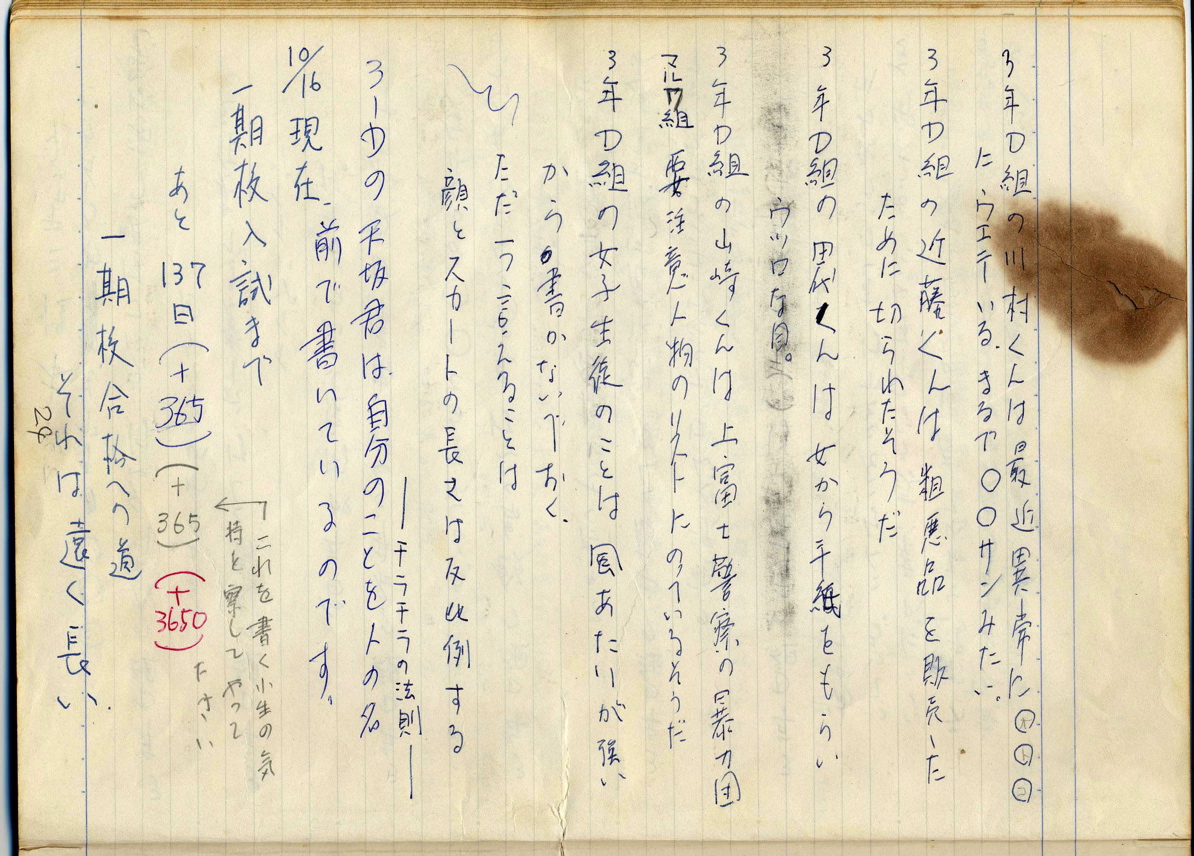 3年D組の川村くんは最近異常にⓄⓉⓀ
にウエテいる。まるで〇〇サンみたい。
3年D組の近藤くんは粗悪品を販売した
ために切られたそうだ
3年D組の田代くんは女から手紙をもらい
ウツロな目。
3年D組の山崎くんは上富士警察の暴力団
マル組 要注意人物のリストにのっているそうだ
3年D組の女子生徒のことは風あたりが強い
から書かないでおく、
ただ一つ言えることは
顔とスカートの長さは反比例する
―チラチラの法則―
3-Dの 坂君は自分のことを人の名
前で書いているのです。
10/16現在、
一期校入試まで
あと137日(+365)(+365)(+3650)
これを書く小生の気
持を察してやって
ださい
一期校合格への道
それは遠く長い。
24